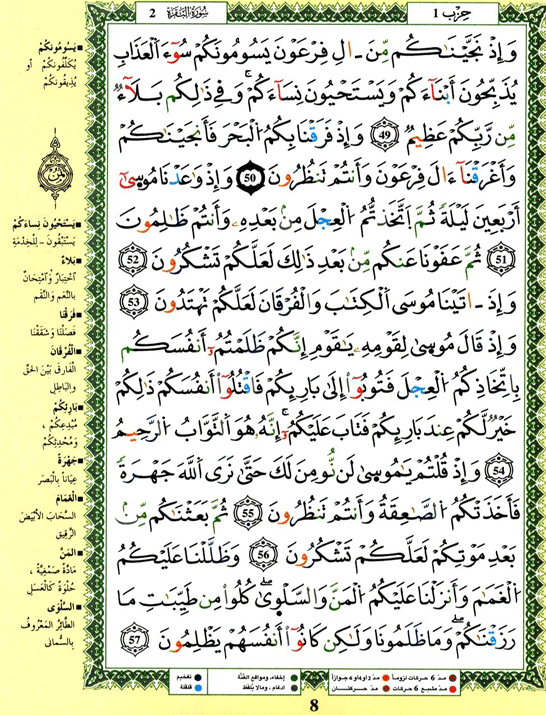 حِزْب 1
سُورَةُ البَقَرَةِ 2
وَإِذْ نَجَّيْنَٰكُم مِّنَ ـ الِ فِرْعَوْنَ يَسُومُونَكُمْ سُوٓءَ اَ۬لْعَذَابِ
يُذَبِّحُونَ أَبْنَآءَكُمْ وَيَسْتَحْيُونَ نِسَآءَكُمْۖ وَفِے ذَٰلِكُم بَلَآءٞ
مِّن رَّبِّكُمْ عَظِيمٞ 49 وَإِذْ فَرَقْنَا بِكُمُ اُ۬لْبَحْرَ فَأَنجَيْنَٰكُمْ
وَأَغْرَقْنَآ ءَالَ فِرْعَوْنَ وَأَنتُمْ تَنظُرُونَ 50 وَإِذْ وَٰعَدْنَا مُوس۪ىٰٓ
أَرْبَعِينَ لَيْلَةٗ ثُمَّ اَ۪تَّخَذتُّمُ اُ۬لْعِجْلَ مِنۢ بَعْدِهِۦ وَأَنتُمْ ظَٰلِمُونَ
51 ثُمَّ عَفَوْنَا عَنكُم مِّنۢ بَعْدِ ذَٰلِكَ لَعَلَّكُمْ تَشْكُرُونَ 52
وَإِذَ ـ اتَيْنَا مُوسَى اَ۬لْكِتَٰبَ وَالْفُرْقَانَ لَعَلَّكُمْ تَهْتَدُونَ 53
وَإِذْ قَالَ مُوس۪ىٰ لِقَوْمِهِۦ يَٰقَوْمِ إِنَّكُمْ ظَلَمْتُمُۥٓ أَنفُسَكُم
بِاتِّخَاذِكُمُ اُ۬لْعِجْلَ فَتُوبُوٓاْ إِلَىٰ بَارِئِكُمْ فَاقْتُلُوٓاْ أَنفُسَكُمْ ذَٰلِكُمْ
خَيْرٞ لَّكُمْ عِندَ بَارِئِكُمْ فَتَابَ عَلَيْكُمُۥٓۖ إِنَّهُۥ هُوَ اَ۬لتَّوَّابُ اُ۬لرَّحِيمُ
54 وَإِذْ قُلْتُمْ يَٰمُوس۪ىٰ لَن نُّومِنَ لَكَ حَتَّىٰ نَرَى اَ۬للَّهَ جَهْرَةٗ
فَأَخَذَتْكُمُ اُ۬لصَّٰعِقَةُ وَأَنتُمْ تَنظُرُونَ 55 ثُمَّ بَعَثْنَٰكُم مِّنۢ
بَعْدِ مَوْتِكُمْ لَعَلَّكُمْ تَشْكُرُونَ 56 وَظَلَّلْنَا عَلَيْكُمُ
اُ۬لْغَمَٰمَ وَأَنزَلْنَا عَلَيْكُمُ اُ۬لْمَنَّ وَالسَّلْو۪ىٰۖ كُلُواْ مِن طَيِّبَٰتِ مَا
رَزَقْنَٰكُمْۖ وَمَا ظَلَمُونَا وَلَٰكِن كَانُوٓاْ أَنفُسَهُمْ يَظْلِمُونَ 57
■ يَسُومُونَكُمْ
يُكَلِّفُونَكُمْ أو
يُذِيقُونَكُمْ
ثمن
■ يَسْتَحْيُونَ نِسَاءَكُمْ
يَسْتَبْقُونَ ـ لِلْخِدْمَةِ
■ بَلَاءٌ
اخْتِبَارٌ وَامْتِحَانٌ
بالنِّعَم والنِّقَم
■ فَرَقْنَا
فَصَلْنَا وَشَقَقْنَا
■ الْفُرْقَانَ
الْفَارِقَ بَيْنَ الحَقِّ
والبَاطِلِ
■ بَارِئِكُمْ
مُبْدِعِكُمْ ،
وَمُحْدِثِكُمْ
■ جَهْرَةً
عِيَاناً بِالْبَصَرِ
■ الْغَمَامَ
السَّحَابَ الأَبْيَضَ
الرَّقِيقَ
■ الْمَنَّ
مَادَّةً صَمْغِيَّةً ،
حُلْوَةً كَالعَسَلِ
■ السَّلْوَى
الطَّائِرَ الْمَعْرُوفَ
بِالسُّمانَى
مدّ 6 حركات لزوماً مدّ 2 أو 4 أو 6 جوازاً إخفاء، ومواقع الغنّة تفخيم
مدّ مشبع 6 حركات مدّ حركتان ادغام، ومالا يلفظ قلقلة
8